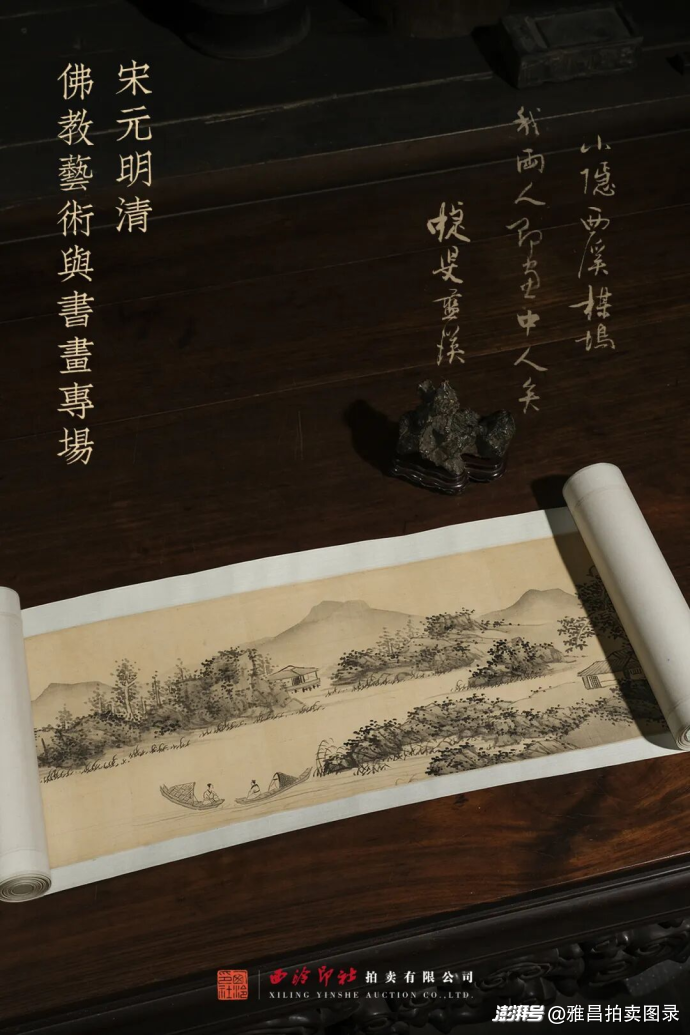 宋元明清
佛教藝術與書畫專場
小隱西溪楳塢
我兩人即畫中人矣
叟
西泠印社拍卖有限公司
XILING YINSHE AUCTION CO.,LTD.
澎湃号@雅昌拍卖图录